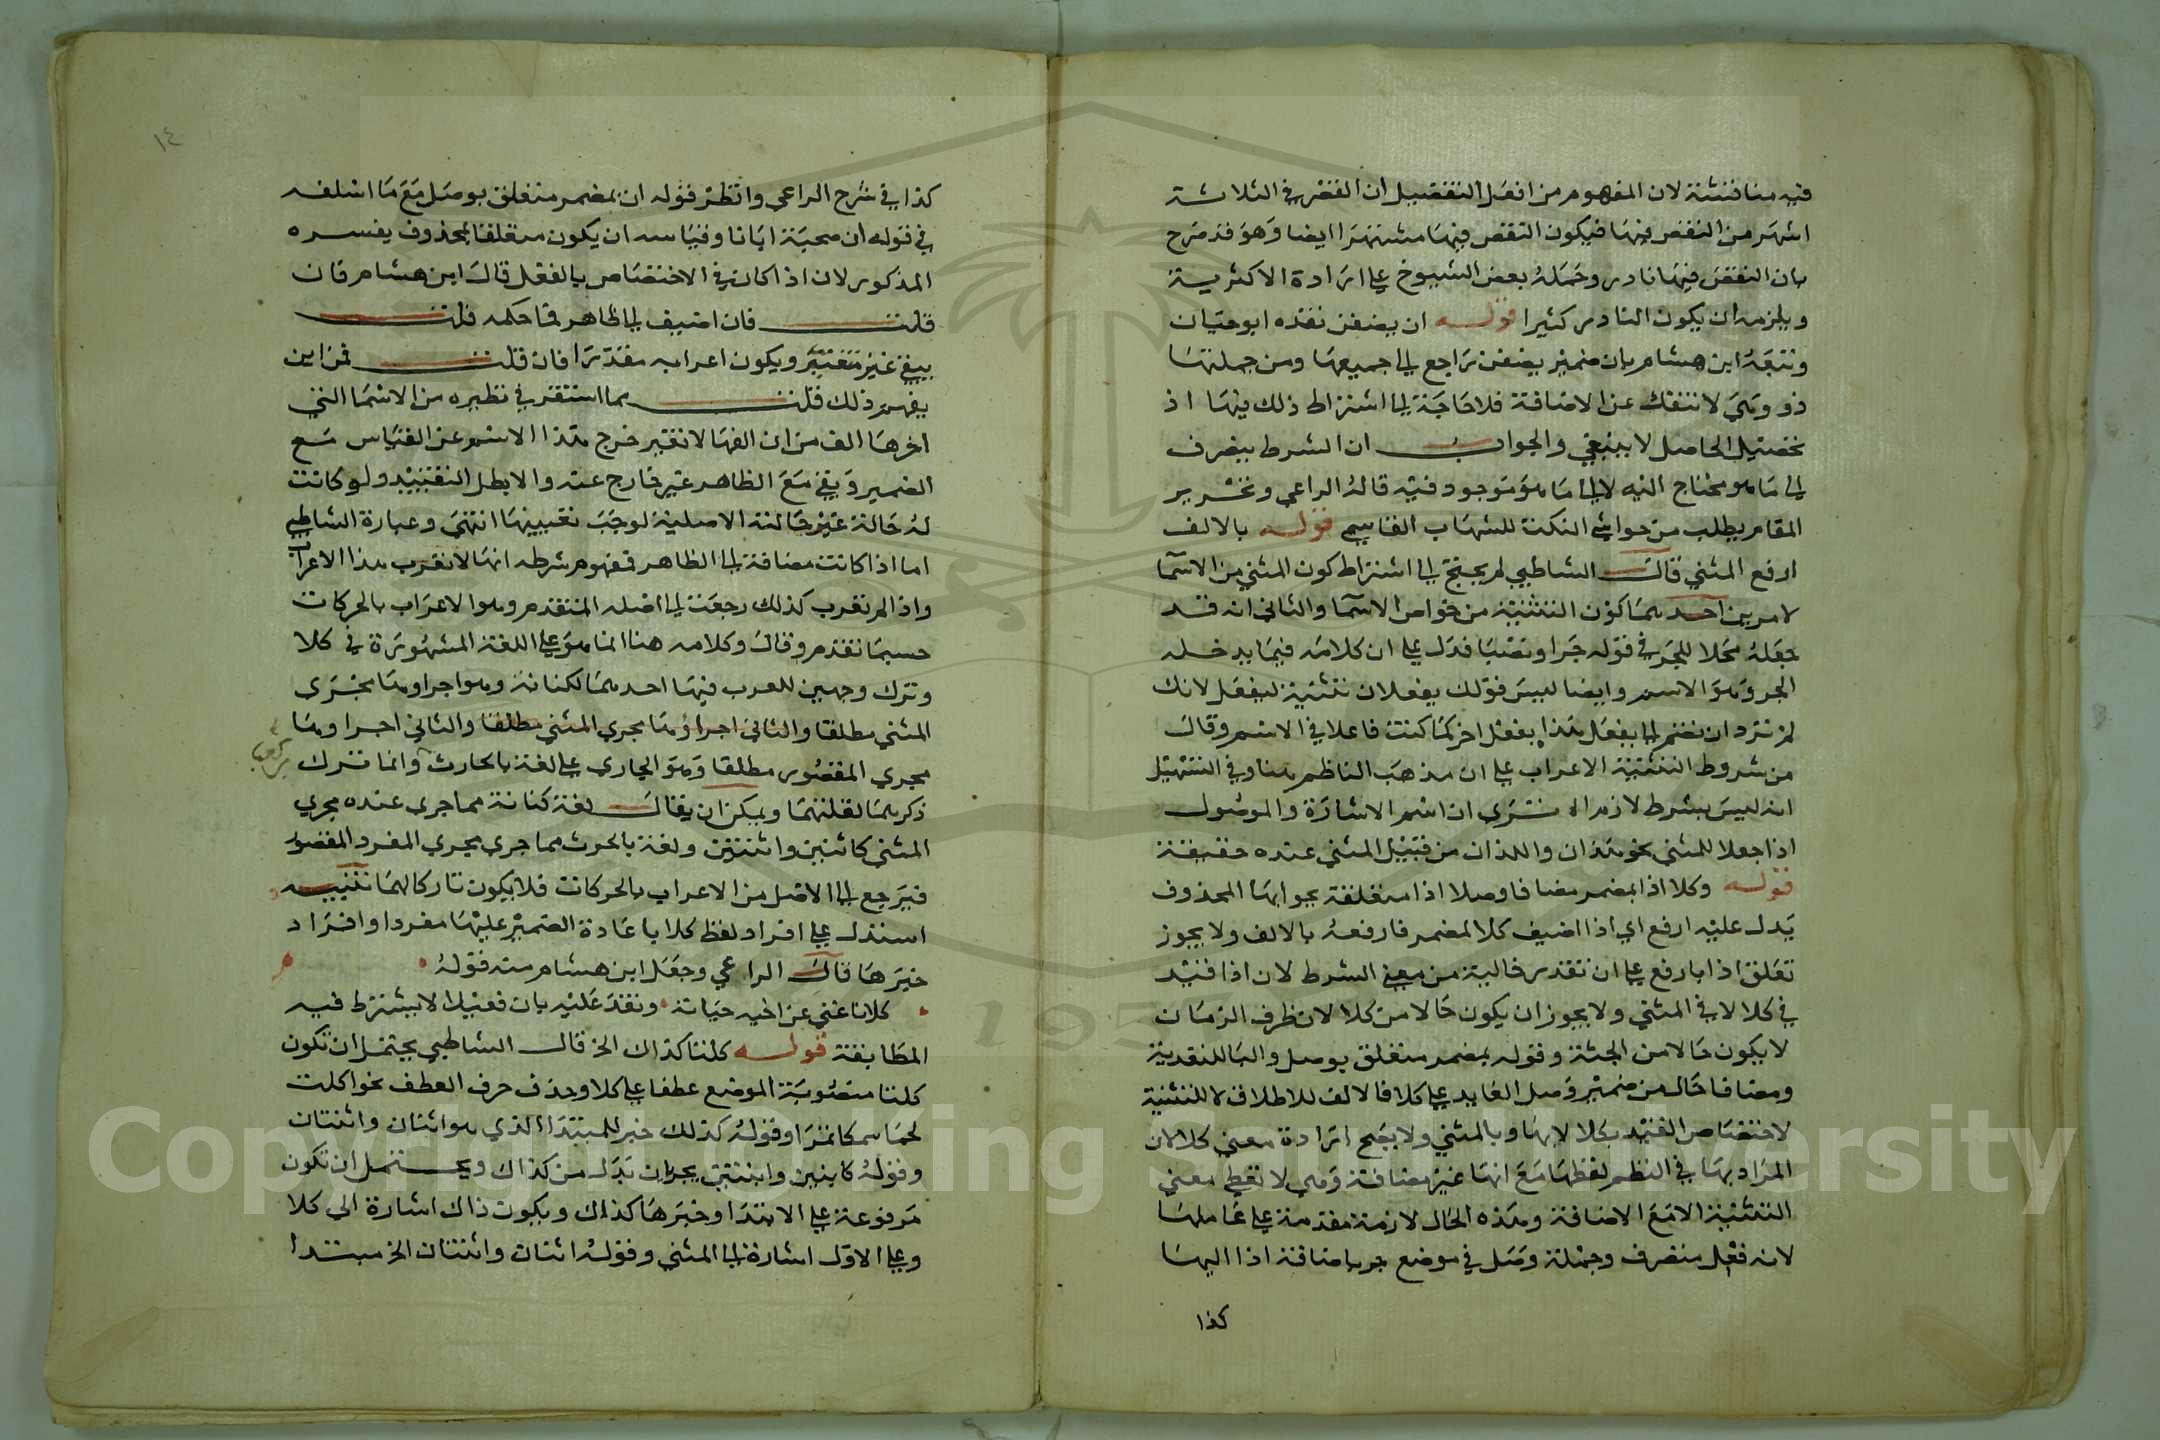 فيه مناقشة لان المفهوم من افعل التفضيل ان القصر في الثلاثة
اشهر من النقص فيها فيكون النقص فيها مشتهرا ايضا وهو قد صرح
بان النقص فيها نادر وحمله بعض الشيوخ على ارادة الاكثرية
ويلزمه ان يكون النادر كثيرا قوله ان يضفن نقده ابو حيان
وتبعه ابن هشام بان ضمير يضفن راجع الى جميعها ومن جملتها
ذو وهي لا تنفك عن الاضافة فلا حاجة الى اشتراط ذلك فيها اذ
تحصيل الحاصل لا ينبغي والجواب ان الشرط ينصرف
الى ما هو محتاج اليه لا الى ما هو موجود فيه قاله الراعي وتحرير
المقام يطلب من حواشي النكت للشهاب القاسمي قوله بالالف
ارفع المثنى قال الشاطبي لم يحتج الى اشتراط كون المثنى من الاسما
لامرين احدهما كون التثنية من خواص الاسما والثاني انه قد
جعله محلا للجر في قوله جرا ونصبا فدل على ان كلامه فيما يدخله
الجر وهو الاسم وايضا ليس قولك يفعلان تثنية ليفعل لانك
لم ترد ان تضم الى يفعل هذا يفعل اخر كما كنت فاعلا في الاسم وقال
من شروط التثنية الاعراب على ان مذهب الناظم هنا وفي التسهيل
انه ليس بشرط لازم الا ترى ان اسم الاشارة والموصول
اذا جعلا للمثنى نحو هذان واللذان من قبيل المثنى عنده حقيقة
قوله وكلا اذا بمضمر مضافا وصلا اذا متعلقة بجوابها المحذوف
يدل عليه ارفع اي اذا اضيف كلا لمضمر فارفعه بالالف ولا يجوز
تعلق اذا بارفع على ان تقدر خالية من معنى الشرط لان اذا قيد
في كلا لا في المثنى ولا يجوز ان يكون حالا من كلا لان ظرف الزمان
لا يكون حالا من الجثة وقوله بمضمر متعلق بوصل والبا للتعدية
ومضافا حال من ضمير وصل العايد على كلا فالالف للاطلاق لا للتثنية
لاختصاص القيد بكلا لا بها وبالمثنى ولا يصح ارادة معنى كلا لان
المراد بها في النظم لفظها مع انها غير مضافة وهي لا تعطي معنى
التثنية الا مع الاضافة وهذه الحال لازمة مقدمة على عاملها
لانه فعل متصرف وجملة وصل في موضع جر باضافة اذا اليها
كذا
١٤
كذا في شرح الراعي وانظر قوله ان بمضمر متعلق بوصل مع ما اسلفه
في قوله ان صحبة ابانا وقياسه ان يكون متعلقا بمحذوف يفسره
المذكور لان اذا كان في الاختصاص بالفعل قال ابن هشام فان
قلت فان اضيف الى ظاهر فما حكمه قلت
يبقى غير متغير ويكون اعرابه مقدرا فان قلت فمن اين
يفهم ذلك قلت مما استقر في نظيره من الاسما التي
اخرها الف من ان الفها لا تتغير خرج هذا الاسم عن القياس مع
الضمير وبقي مع الظاهر غير خارج عنه والا بطل التقييد ولو كانت
له حالة غير حالته الاصلية لوجب تعيينها انتهى وعبارة الشاطبي
اما اذا كانت مضافة الى الظاهر فمفهوم شرطه انها لا تعرب هذا الاعراب
واذا لم تعرب كذلك رجعت الى اصله المتقدم وهو الاعراب بالحركات
حسبما تقدم وقال وكلامه هنا انما هو على اللغة المشهورة في كلا
وترك وجهين للعرب فيها احدهما لكنانة وهو اجراوها مجرى
المثنى مطلقا والثاني اجراوها مجرى المثنى مطلقا والثاني اجراوها
مجرى المقصور مطلقا وهو الجاري على لغة بالحارث وانما ترك
ذكرهما لقلتهما ويمكن ان يقال لغة كنانة مما جرى عنده مجرى
المثنى كاثنين واثنتين ولغة بالحرث مما جرى مجرى المفرد المقصور
فيرجع الى الاصل من الاعراب بالحركات فلا يكون تاركا لهما تنبيه
استدل على افراد لفظ كلا باعادة الضمير عليها مفردا وافراد
خبرها قال الراعي وجعل ابن هشام منه قوله
كلانا غني عن اخيه حياته ونقد عليه بان فعيلا لا يشترط فيه
المطابقة قوله كلتا كذاك الخ قال الشاطبي يحتمل ان تكون
كلتا منصوبة الموضع عطفا على كلا وحذف حرف العطف نحو اكلت
لحما سمكا تمرا وقوله كذلك خبر للمبتدا الذي هو اثنان واثنتان
وقوله كابنين وابنتين يجريان بدل من كذاك ويحتمل ان تكون
مرفوعة على الابتدا وخبرها كذاك ويكون ذاك اشارة الى كلا
وعلى الاول اشارة الى المثنى وقوله اثنان واثنتان الخ مبتدا